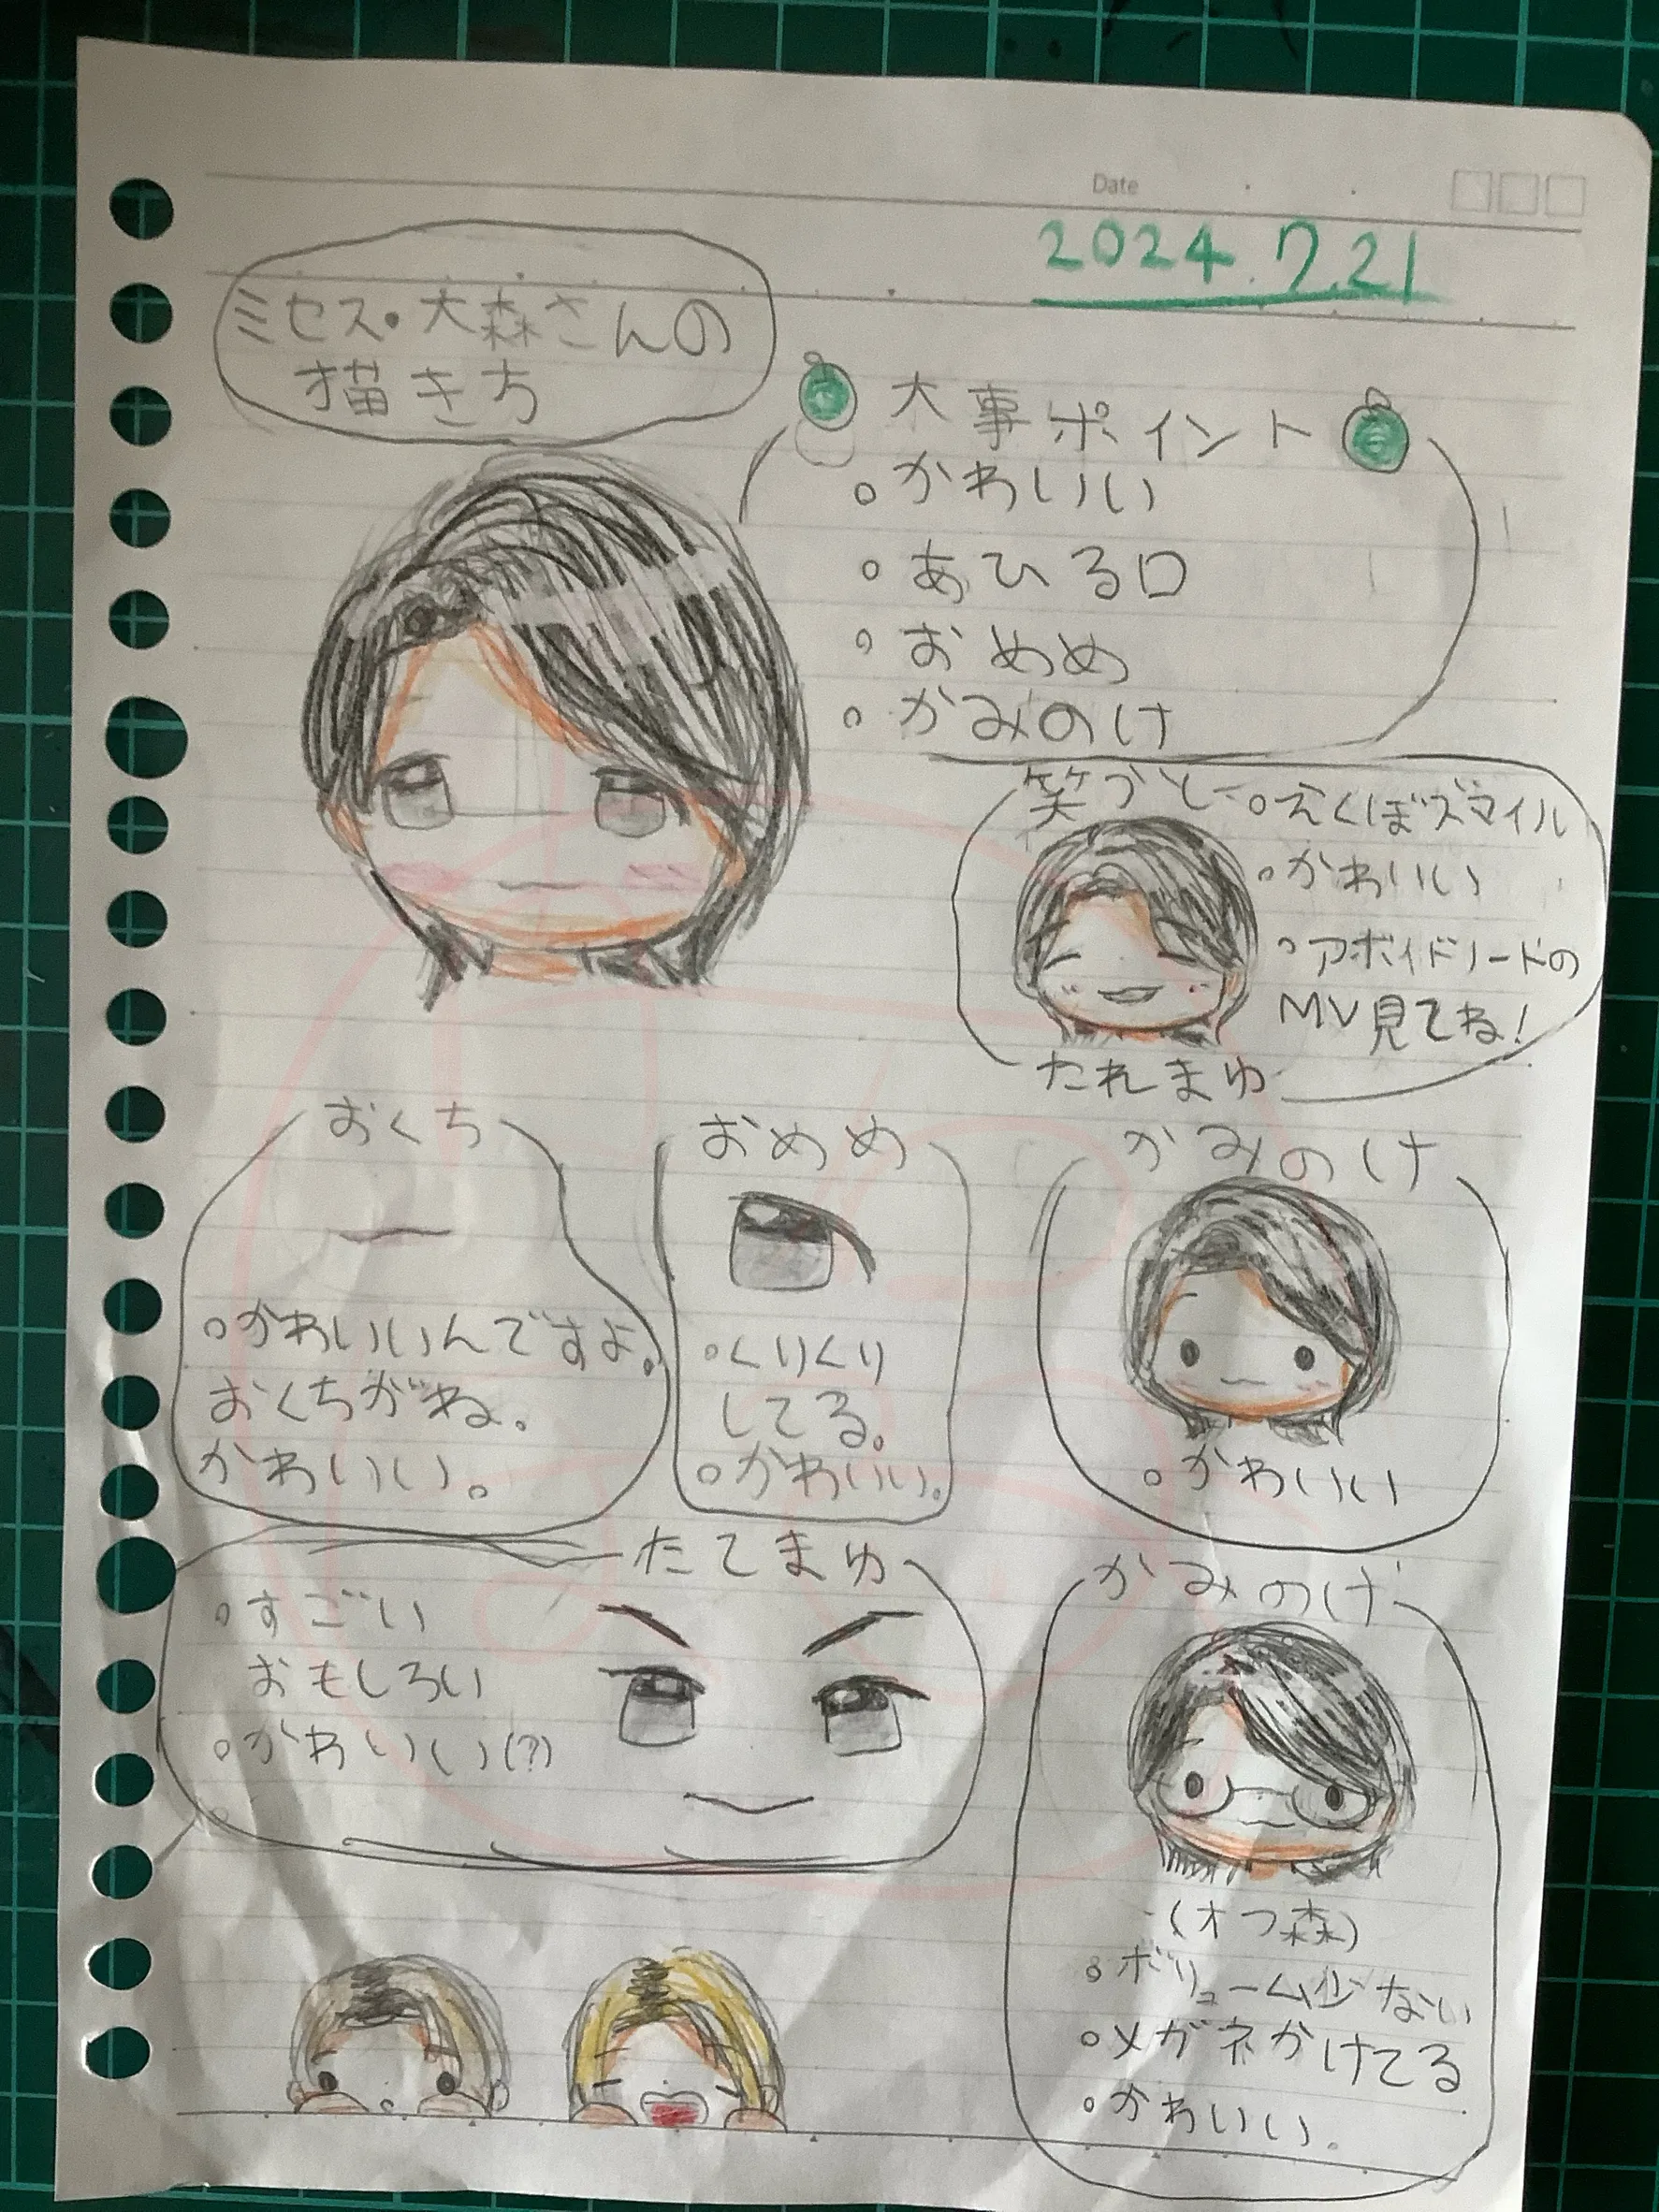 Date
2024.7.21
ミセス・大森さんの
描き方
大事ポイント
。かわいい
。あひる口
。おめめ
。かみのけ
笑うと
。えくぼスマイル
。かわいい
。アボイドノートの
MV見てね!
たれまゆ
おくち
。かわいいんですよ。
おくちがね。
かわいい。
おめめ
。くりくり
してる。
。かわいい。
かみのけ
。かわいい
たてまゆ
。すごい
おもしろい
。かわいい(?)
かみのけ
(オフ森)
。ボリューム少ない
。メガネかけてる
。かわいい。